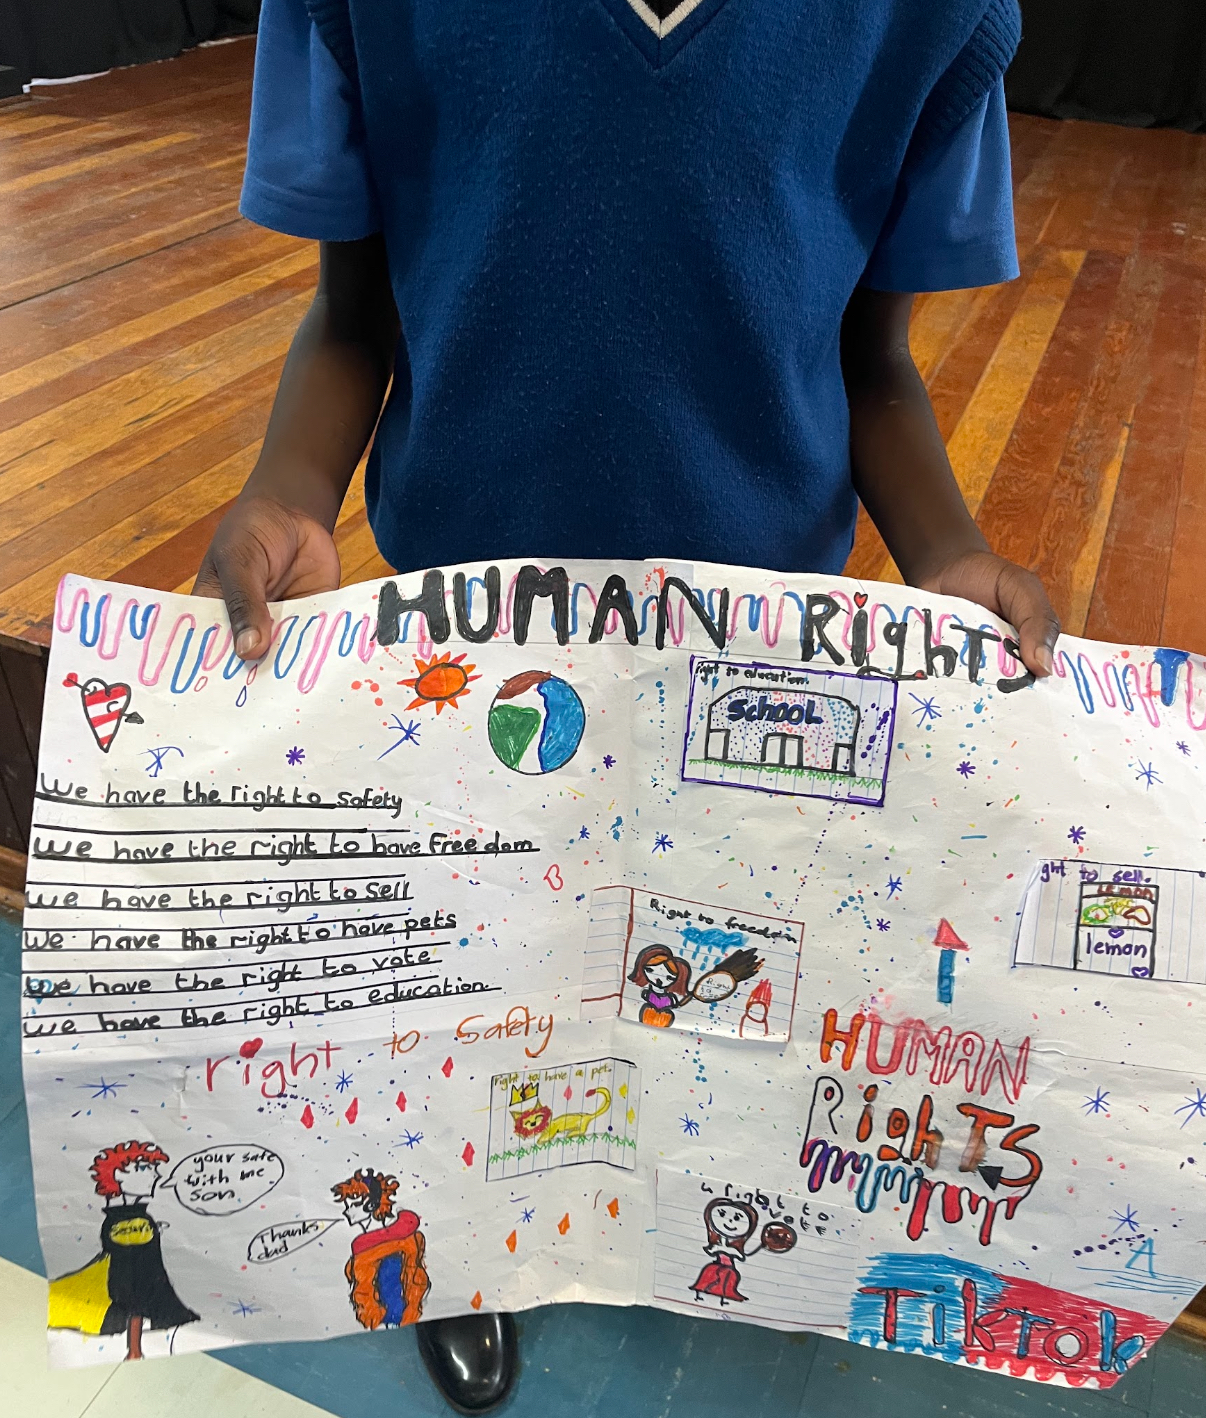 HUMAN RighTS
right to education.
SCHOOL
We have the right to Safety
We have the right to have Freedom
We have the right to Sell
We have the right to have pets
We have the right to vote
We have the right to education.
ght to sell.
lemon
lemon
Right to freedom
right to Safety
right to have a pet.
HUMAN
RighTS
your safe
with me
son
Thanks
dad
right to
vote
TikTok